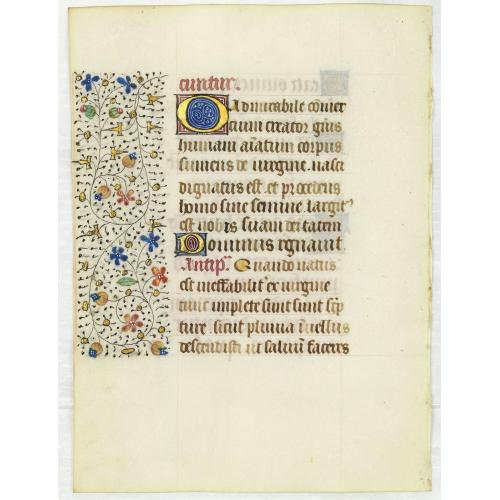 cuntur.
O admirabile cōmer
cium creator gn̄is
humani aīatum corpus
sumens de uirgine nasci
dignatus est. et procedens
homo sine semine. largit᷑
est nobis suam deitatem
Dominus regnauit
Antip̄. Quando natus
est ineffabilit̄ ex uirgine
tunc implete sunt sunt scp̄
ture. sicut pluuia ī uellus
descendisti ut saluū faceres